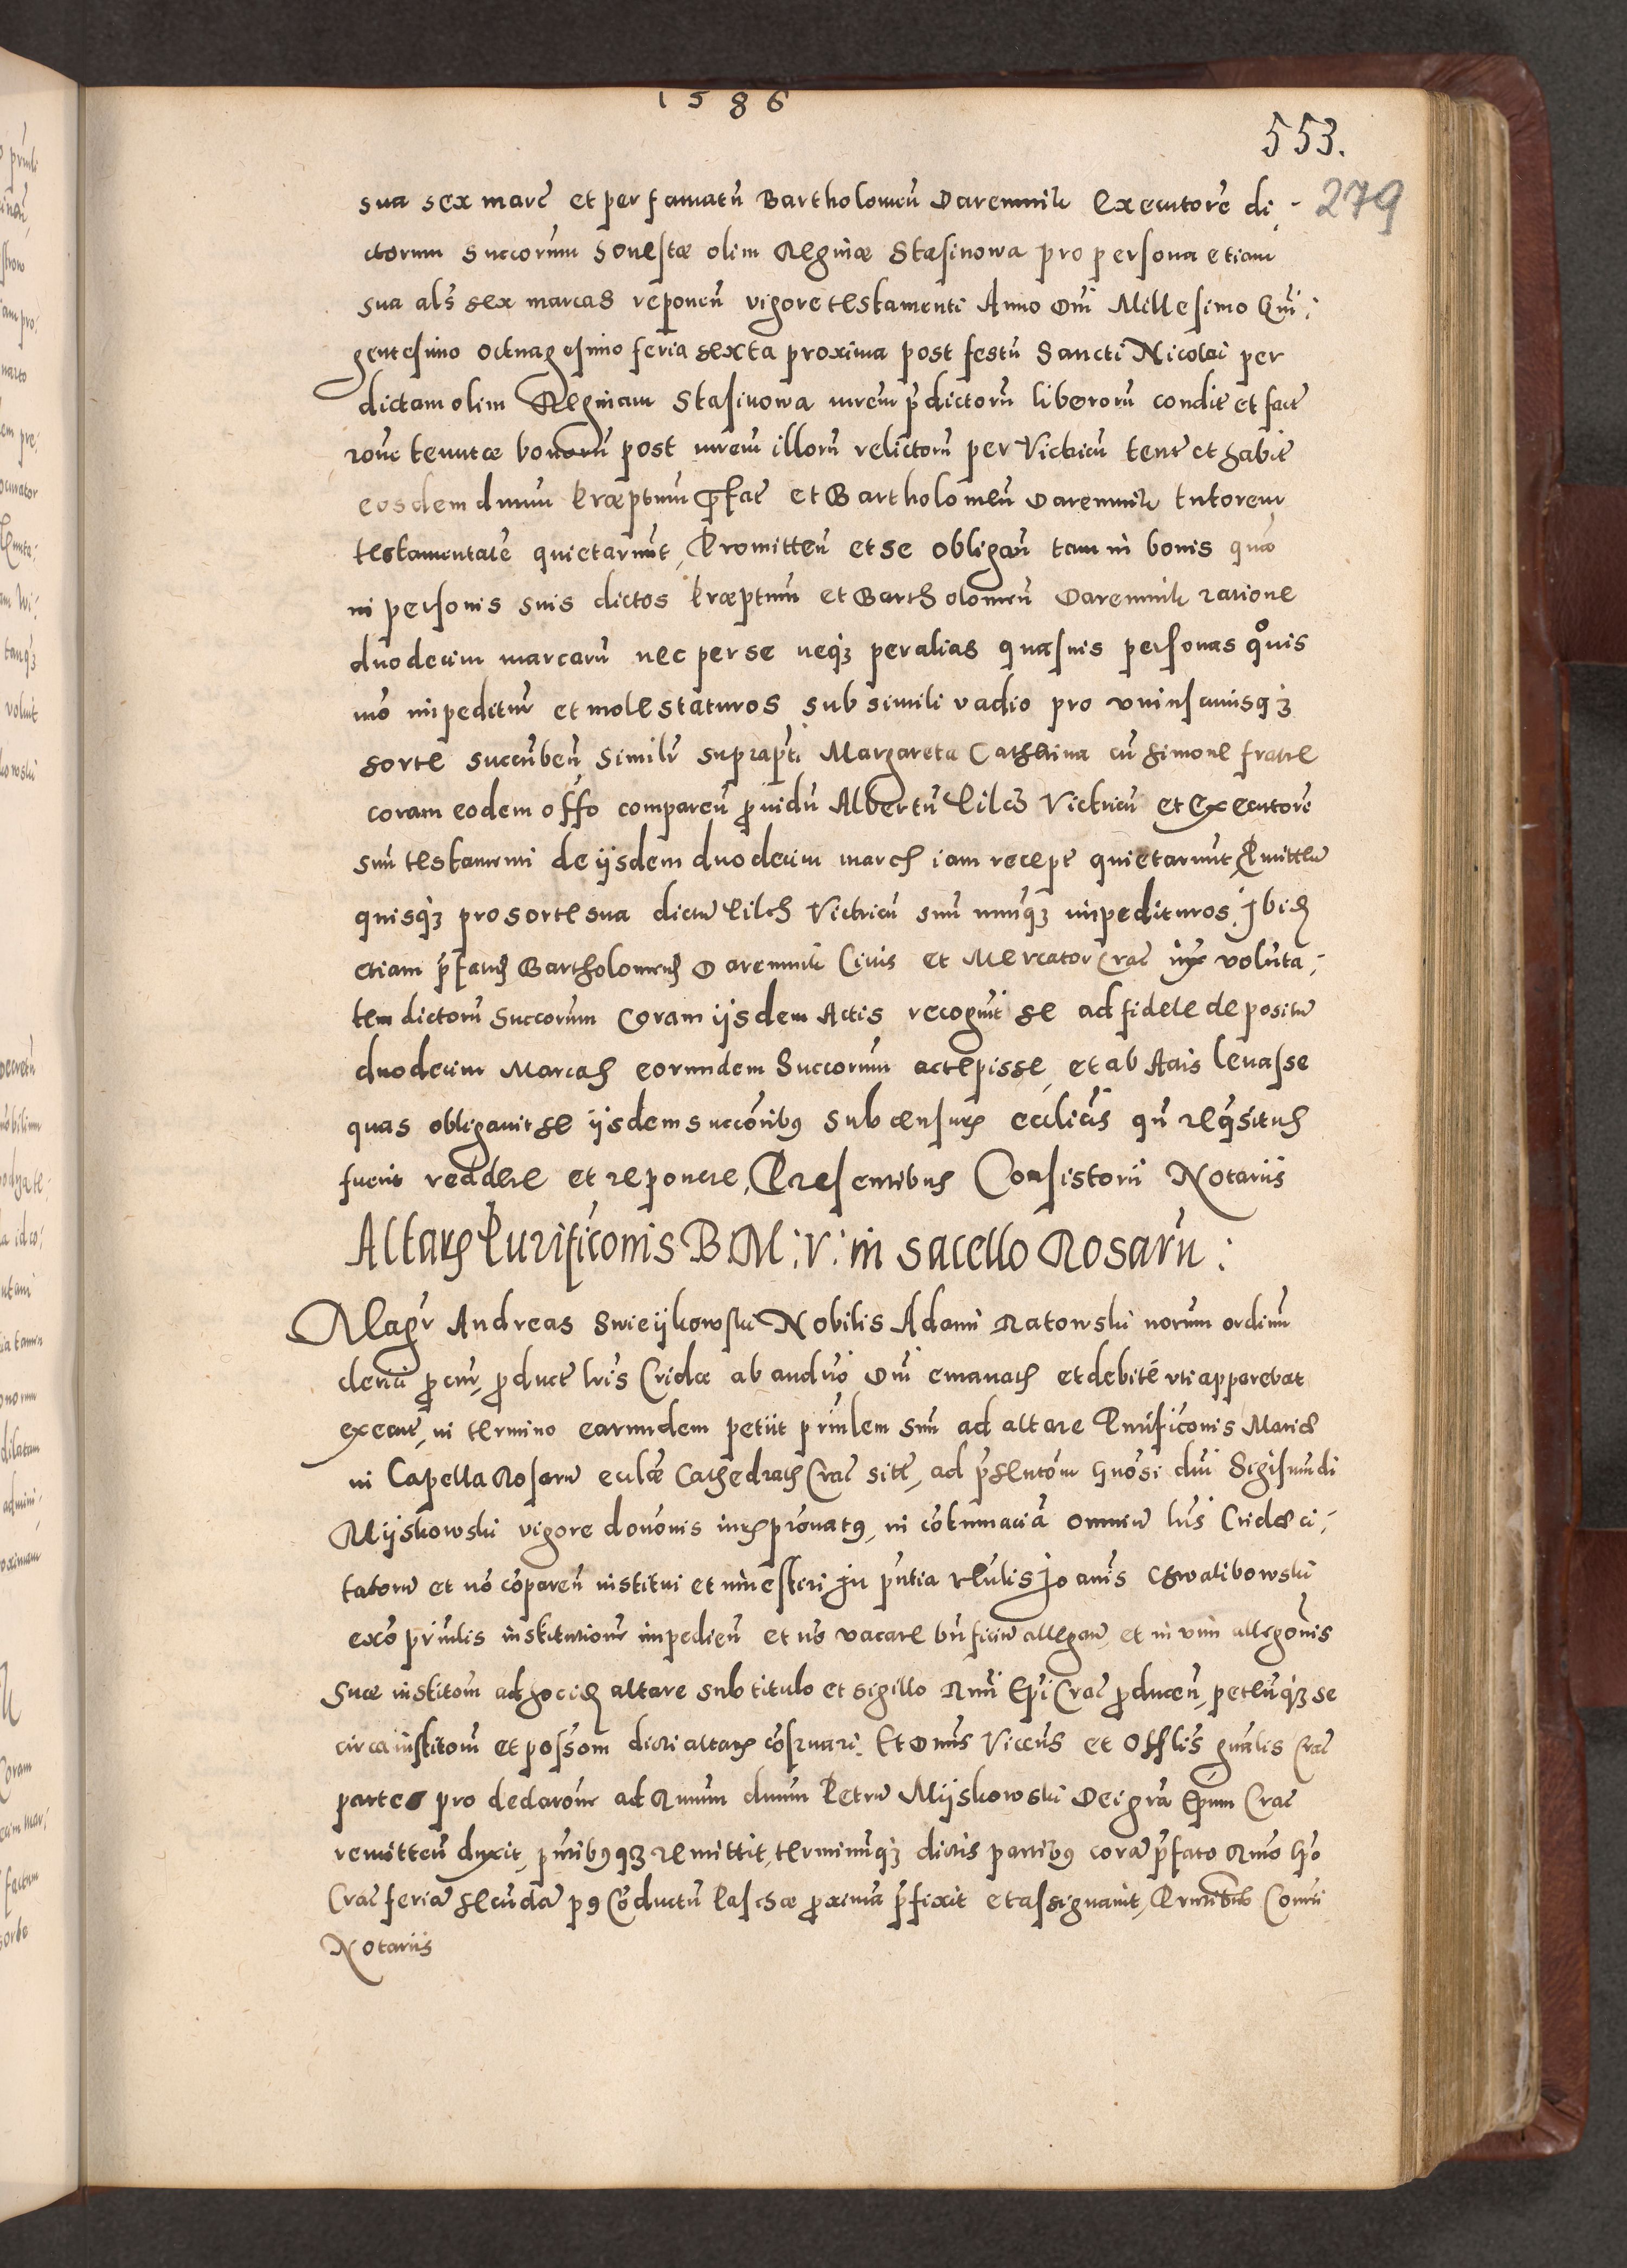 1586
553.
279
sua sex marc̄ et per famatū Bartholomeū Daremnik Executorē di-
ctorum Succorum Honestæ olim Reginæ Stasinowa pro persona etiam
sua als̄ sex marcas reponeñ vigore testamenti Anno Dni Millesimo Qui:
gentesimo octuagesimo feria sexta proxima post festū Sancti Nicolai per
dictam olim Reginam Stasinowa mrem p̄dictorū liberorū condit̄ et fact̄
rone tenutæ bonorū post mrem illorū relictorū per Victricū tent̄ et habit̄
eosdem dnum Præptum p̄fat̄ et Bartholomeū Daremnik tutorem
testamentarē quietarunt, Promitteñ et se obligañ tam in bonis quā
in personis suis dictos Præptum et Bartholomeū Daremnik ratione
duodecim marcarū nec per se neq3 per alias quasuis personas quouis
mō impeditur̄ et molestaturos sub simili vadio pro vniuscuiusq3
sorte succūbeñ Similr̄ suprap̄ti Margareta Catherina cū Simone fratre
coram eodem offo compareñ p̄uidū Albertū Pilch Victricū et Executorē
suū testamenti de ijsdem duodecim march iam recept̄ quietarunt, Pmitteñ
quisq3 pro sorte sua dictū Pilch Victricū suū nunq3 impedituros. Ibid
etiam p̄fatus Bartholomeus Daremnik Ciuis et Mercator Crac̄ iux volūta:
tem dictorū Succorum Coram ijsdem Actis recognuit se ad fidele depositū
duodecim Marcas eorundem Succorum accepisse, et ab Actis leuasse
quas obligauit se ijsdem succoribus sub censuris ecclicis qñ reqsitus
fuerit reddere et reponere, Presentibus Consistorii Notariis
Altaris Purificonis B.M:V: in sacello Rosarū:
Magr̄ Andreas Swieijkowski Nobilis Adami Ratowski norum ordinū
clerici pcur̄, pduct̄ lris Cridæ ab audno Dni emanatis et debitè vti apparebat
execut̄, in termino earundem petiit prinlem suū ad altare Purificonis Mariæ
in Capella Rosarū eccliæ Cathedralis Crac̄ sitē, ad p̄sentom Gnosi dni Sigismūdi
Mijskowski vigore donōnis iurispronatus, in cōtumaciā omniū lris Cridæ ci:
tatorū et nō cōpareñ institui et inuestiri In p̄ntia vēn̄lis Joānis Chwalibowski
exō prin̄lis institutionē impedieñ et nō vacare bn̄ficiū allegañ, et in vim allegōnis
suæ institom ad hoc id altare sub titulo et sigillo Rmi Epi Crac̄ pduceñ, peteñq3 se
circa institom et possom dicti altaris cōseruari. Et Dnus Viceus et Offlis gnālis Crac̄
partes pro declarōne ad Rmum dnum Petrū Mijskowski Dei gra Epum Crac̄
remitteñ duxit, pn̄tibus q3 remittit, terminūq3 dictis partibus corā p̄fato Rmo Epo
Crac̄ feriā secūdā pus Cōductū Paschæ pximā p̄fixit et assignauit, Pn̄tibus Consrii
Notariis